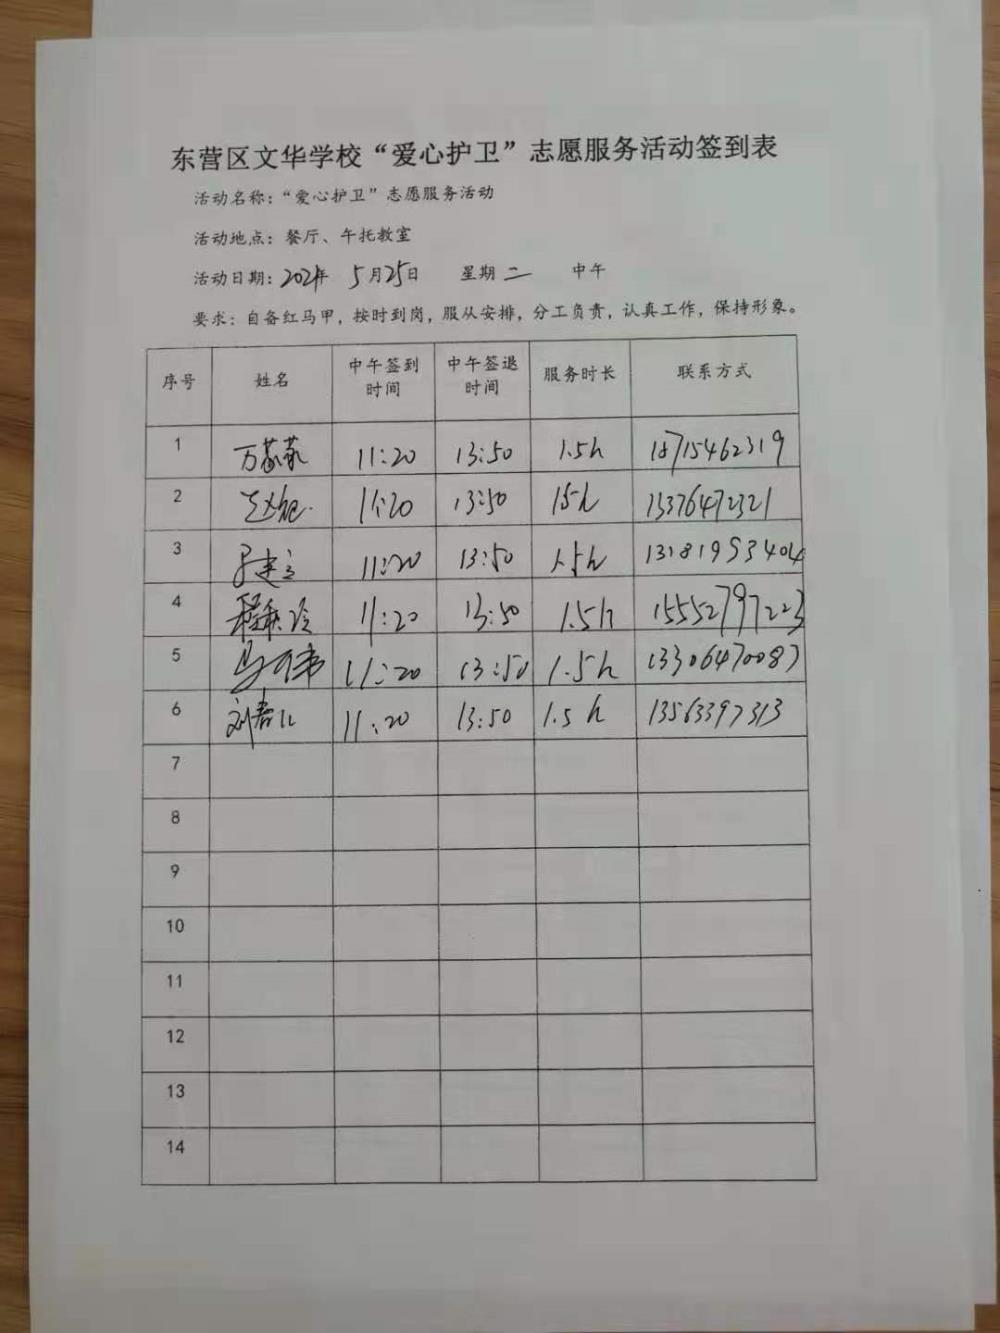 东营区文华学校“爱心护卫”志愿服务活动签到表
活动名称：“爱心护卫”志愿服务活动
活动地点：餐厅、午托教室
活动日期：2021年 5月25日 星期二 中午
要求：自备红马甲，按时到岗，服从安排，分工负责，认真工作，保持形象。
序号 姓名 中午签到时间 中午签退时间 服务时长 联系方式
1 万蒙蒙 11:20 13:50 1.5h 18715462319
2 11:20 13:50 1.5h 13376472321
3 11:20 13:50 1.5h 13181993404
4 11:20 13:50 1.5h 15552797223
5 11:20 13:50 1.5h 13306470087
6 11:20 13:50 1.5h 13563397313
7
8
9
10
11
12
13
14